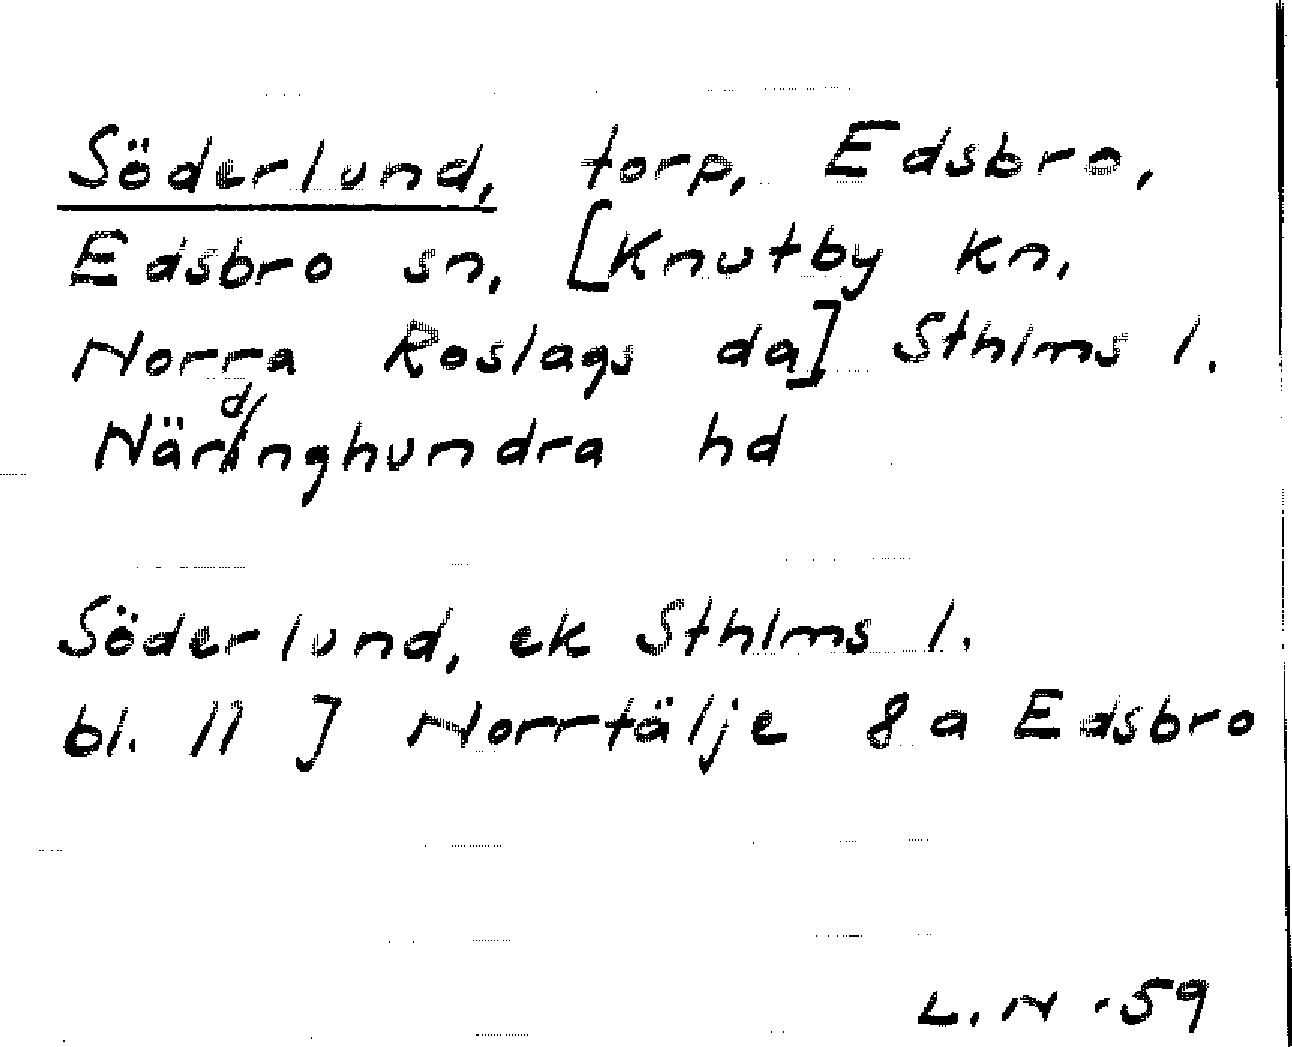 Söderlund, torp, Edsbro,
Edsbro sn, [Knutby kn,
Norra Roslags da] Sthlms l.
Närdinghundra hd
Söderlund, ek Sthlms l.
bl. 11 J Norrtälje 8 a Edsbro
L. N -59